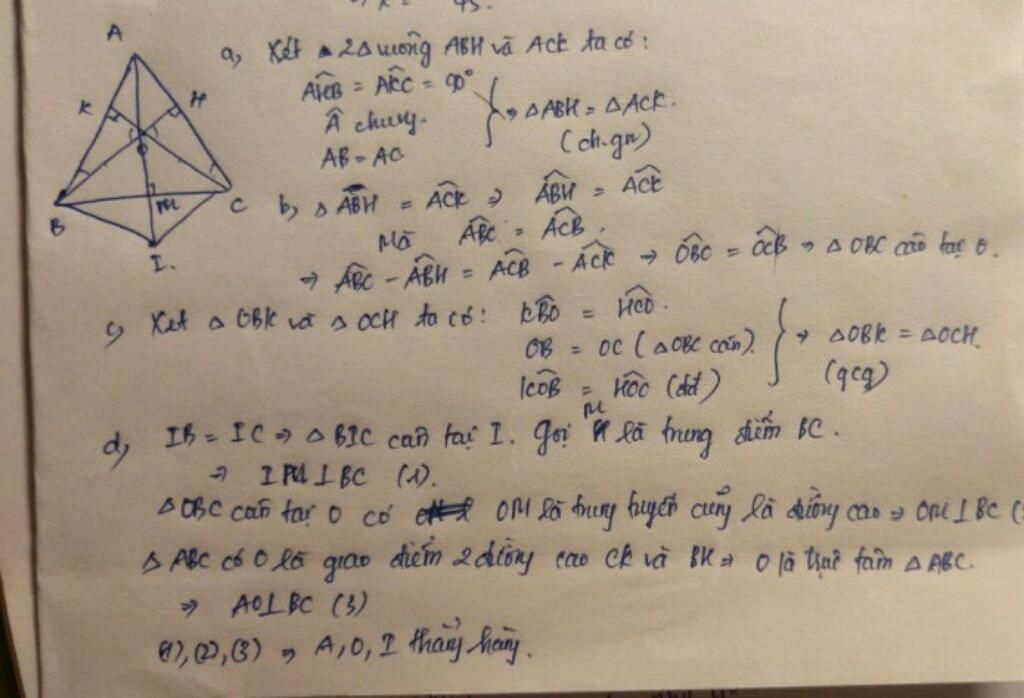 A
K
H
O
B
M
C
I.
a, Xét 2Δ vuông ABH và ACK ta có:
AHB = AKC = 90°
Â chung.
AB = AC
⇒ ΔABH = ΔACK.
(ch.gn)
b, Δ ABH = ACK ⇒ ABH = ACK
Mà ABC = ACB.
⇒ ABC - ABH = ACB - ACK ⇒ OBC = OCB ⇒ Δ OBC cân tại O.
c, Xét Δ OBK và Δ OCH ta có: KBO = HCO.
OB = OC (ΔOBC cân).
KOB = HOC (đđ)
⇒ ΔOBK = ΔOCH.
(gcg)
d, IB = IC ⇒ Δ BIC cân tại I. Gọi M là trung điểm BC.
⇒ IM ⊥ BC (1).
ΔOBC cân tại O có OM là trung tuyến cũng là đường cao ⇒ OM ⊥ BC (
Δ ABC có O là giao điểm 2 đường cao CK và BH ⇒ O là trực tâm Δ ABC.
⇒ AO ⊥ BC (3)
(1), (2), (3) ⇒ A, O, I thẳng hàng.